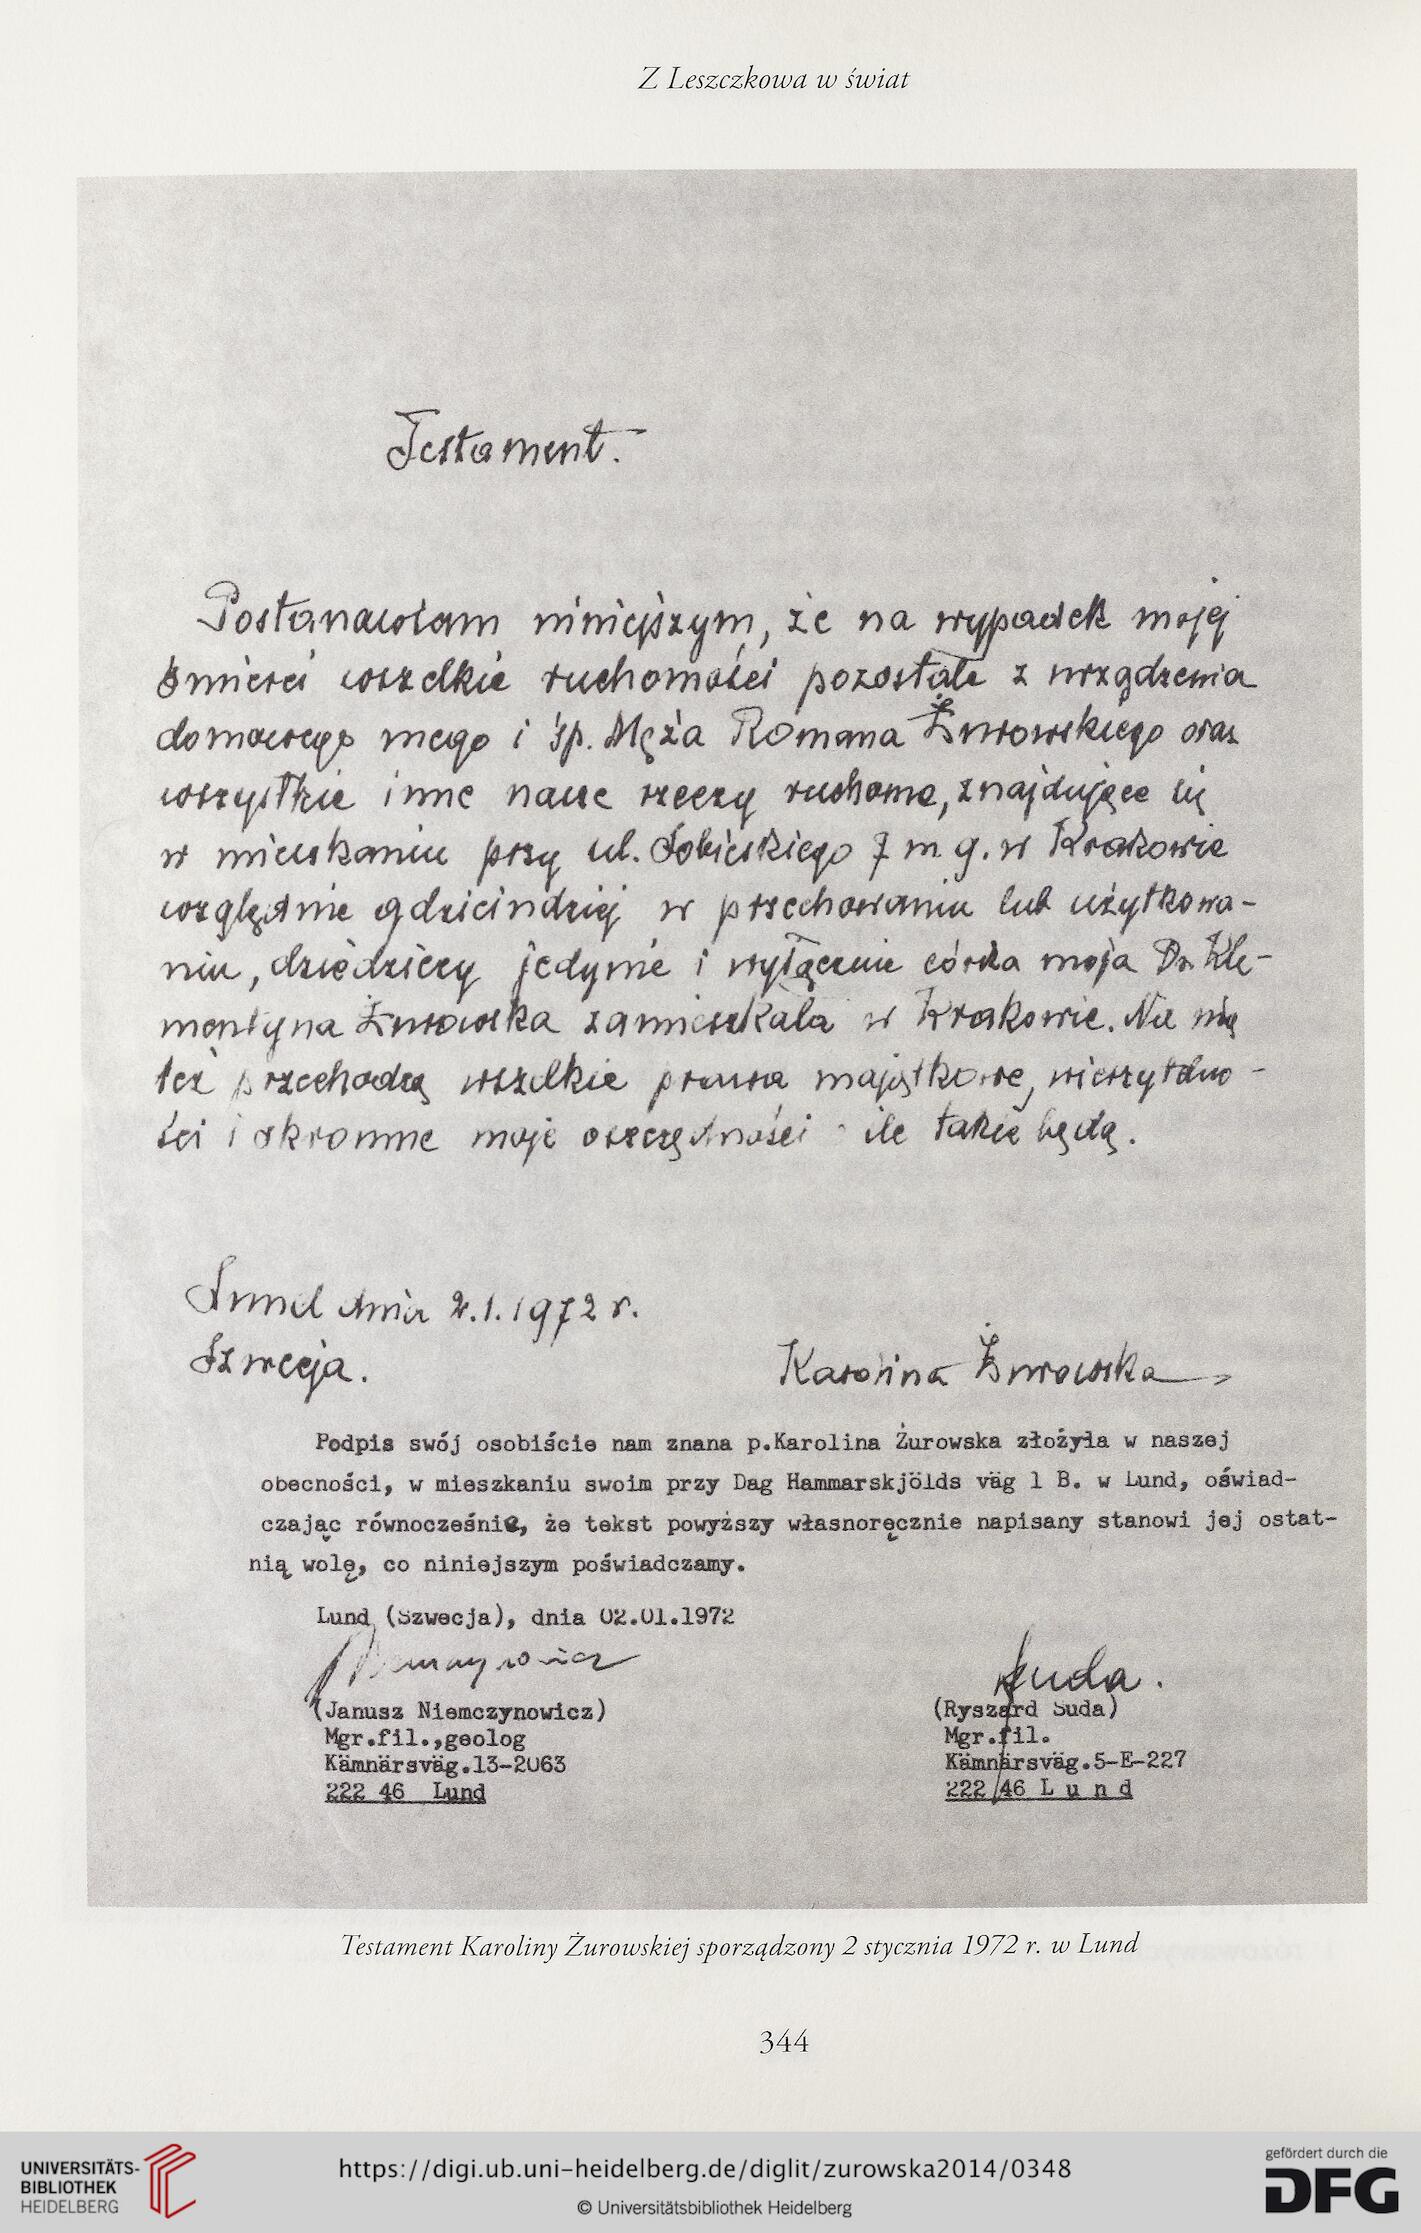 Z Leszczkowa w świat
Testament.
Postanawiam niniejszym, że na wypadek mojej
śmierci wszelkie ruchomości pozostałe z urządzenia
domowego mego i śp. Męża Romana Żurowskiego oraz
wszystkie inne nasze rzeczy ruchome, znajdujące się
w mieszkaniu przy ul. Sobieskiego 7 m 9. w Krakowie
względnie gdzieindziej w przechowaniu lub użytkowa-
niu, dziedziczy jedynie i wyłącznie córka moja Dr. Kle-
mentyna Żurowska zamieszkała w Krakowie. Na nią
też przechodzą wszelkie prawa majątkowe, wierzytelno-
ści i skromne moje oszczędności - ile takie będą.
Lund dnia 2.1.1972 r.
Szwecja.
Karolina Żurowska
Podpis swój osobiście nam znana p.Karolina Żurowska złożyła w naszej
obecności, w mieszkaniu swoim przy Dag Hammarskjölds väg 1 B. w Lund, oświad-
czając równocześnie, że tekst powyższy własnoręcznie napisany stanowi jej ostat-
nią wolę, co niniejszym poświadczamy.
Lund (Szwecja), dnia 02.01.1972
Niemczynowicz
Suda.
(Janusz Niemczynowicz)
Mgr.fil.,geolog
Kämnärsväg.13-2063
222 46 Lund
(Ryszard Suda)
Mgr.fil.
Kämnärsväg.5-E-227
222 46 L u n d
Testament Karoliny Żurowskiej sporządzony 2 stycznia 1972 r. w Lund
344
UNIVERSITÄTS-
BIBLIOTHEK
HEIDELBERG
https://digi.ub.uni-heidelberg.de/diglit/zurowska2014/0348
© Universitätsbibliothek Heidelberg
gefördert durch die
DFG